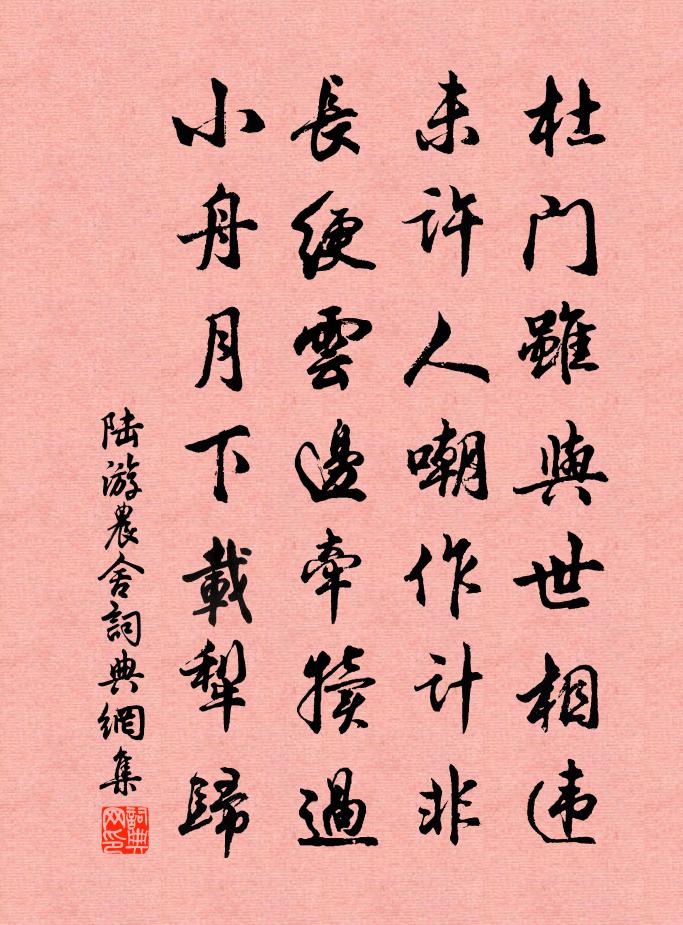 杜门雖與世相违
未許人嘲作計非
長綆雲邊牽犢過
小舟月下載犁歸
陆游農舍詞典網集
詞典网印